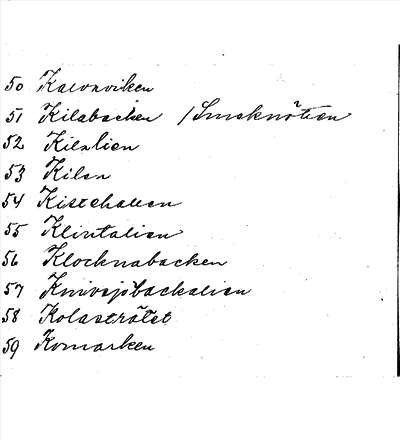 50 Kalvsviken
51 Kilabacken / Smeknöten
52 Kilalien
53 Kilen
54 Kistehallen
55 Klintalien
56 Klocknabacken
57 Knivsjöbackalien
58 Kolastråtet
59 Komarken